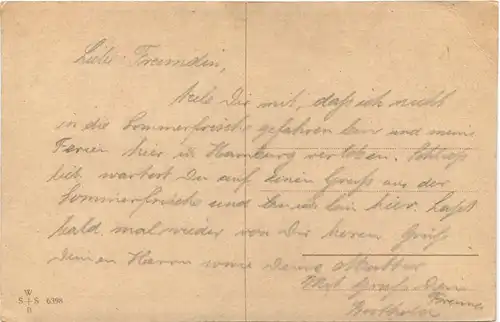 Liebe Freundin,
teile Dir mit, daß ich nicht
in die Sommerfrische gefahren bin und meine
Ferien hier in Hamburg verleben.
wartest Du auf einen Gruß aus der
Sommerfrische und bin ich hier. Laßt
bald mal wieder von Dir hören. Grüß
deinen Herrn sowie deine Mutter
Mit Gruß Dein
W
S+S 6398
B